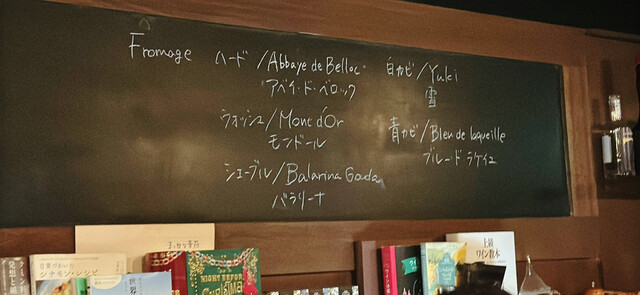 Fromage
ハード/Abbaye de Belloc
アベイ・ド・ベロック
ウォッシュ/Mont d'Or
モンドール
シェーブル/Balarina Goada
バラリーナ
白カビ/Yuki
雪
青カビ/Bleu de laqueille
ブルー ド ラケイユ
シナモン・レシピ
世界
NIGHT BEFORE
CHRISTMAS
上級
ワイン教本